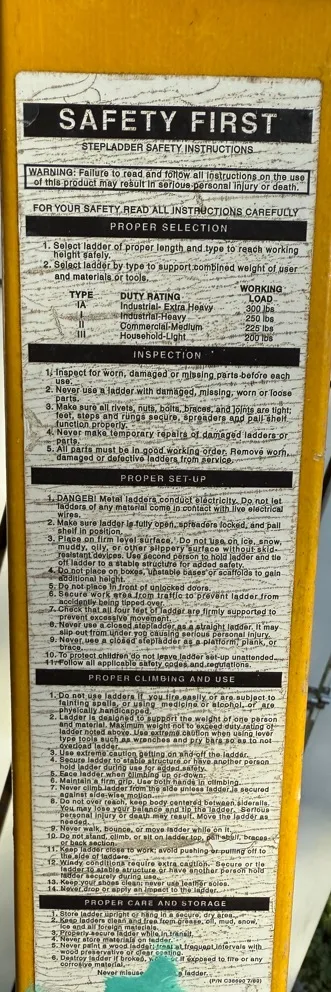 SAFETY FIRST
STEPLADDER SAFETY INSTRUCTIONS
WARNING: Failure to read and follow all instructions on the use
of this product may result in serious personal injury or death.
FOR YOUR SAFETY READ ALL INSTRUCTIONS CAREFULLY
PROPER SELECTION
1. Select ladder of proper length and type to reach working
height safely.
2. Select ladder by type to support combined weight of user
and materials or tools.
TYPE DUTY RATING WORKING LOAD
IA Industrial- Extra Heavy 300 lbs
I Industrial-Heavy 250 lbs
II Commercial-Medium 225 lbs
III Household-Light 200 lbs
INSPECTION
1. Inspect for worn, damaged or missing parts before each
use.
2. Never use a ladder with damaged, missing, worn or loose
parts.
3. Make sure all rivets, nuts, bolts, braces, and joints are tight;
feet, steps and rungs secure, spreaders and pail shelf
function properly.
4. Never make temporary repairs of damaged ladders or
parts.
5. All parts must be in good working order. Remove worn,
damaged or defective ladders from service.
PROPER SET-UP
1. DANGER! Metal ladders conduct electricity. Do not let
ladders of any material come in contact with live electrical
wires.
2. Make sure ladder is fully open, spreaders locked, and pail
shelf in position.
3. Place on firm level surface. Do not use on ice, snow,
muddy, oily, or other slippery surface without skid-
resistant devices. Use second person to hold ladder and tie
off ladder to a stable structure for added safety.
4. Do not place on boxes, unstable bases or scaffolds to gain
additional height.
5. Do not place in front of unlocked doors.
6. Secure work area from traffic to prevent ladder from
accidently being tipped over.
7. Check that all four feet of ladder are firmly supported to
prevent excessive movement.
8. Never use a closed stepladder as a straight ladder. It may
slip out from under you causing serious personal injury.
9. Never use a closed stepladder as a platform, plank, or
brace.
10. To protect children do not leave ladder set-up unattended.
11. Follow all applicable safety codes and regulations.
PROPER CLIMBING AND USE
1. Do not use ladders if you tire easily or are subject to
fainting spells, or using medicine or alcohol, or are
physically handicapped.
2. Ladder is designed to support the weight of one person
and material. Maximum weight not to exceed duty rating of
ladder noted above. Use extreme caution when using lever
type tools such as wrenches and pry bars so as to not
overload ladder.
3. Use extreme caution getting on and off the ladder.
4. Secure ladder to stable structure or have another person
hold ladder during use for added safety.
5. Face ladder when climbing up or down.
6. Maintain a firm grip. Use both hands in climbing.
7. Never climb ladder from the side unless ladder is secured
against side-wise motion.
8. Do not over reach, keep body centered between siderails.
You may lose your balance and tip the ladder. Serious
personal injury or death may result. Move the ladder as
needed.
9. Never walk, bounce, or move ladder while on it.
10. Do not stand, climb, or sit on ladder top, pail shelf, braces
or back section.
11. Keep ladder close to work; avoid pushing or pulling off to
the side of ladders.
12. Windy conditions require extra caution. Secure or tie
ladder to stable structure or have another person hold
ladder securely during use.
13. Keep your shoes clean; never use leather soles.
14. Never drop or apply an impact to the ladder.
PROPER CARE AND STORAGE
1. Store ladder upright or hang in a secure, dry area.
2. Keep ladders clean and free from grease, oil, mud, snow,
ice and all foreign materials.
3. Properly secure ladder while in transit.
4. Never store materials on ladder.
5. Never paint a wood ladder; treat at frequent intervals with
wood preservative or clear coating.
6. Destroy ladder if broken, if exposed to fire or any
corrosive material.
Never misuse a ladder.